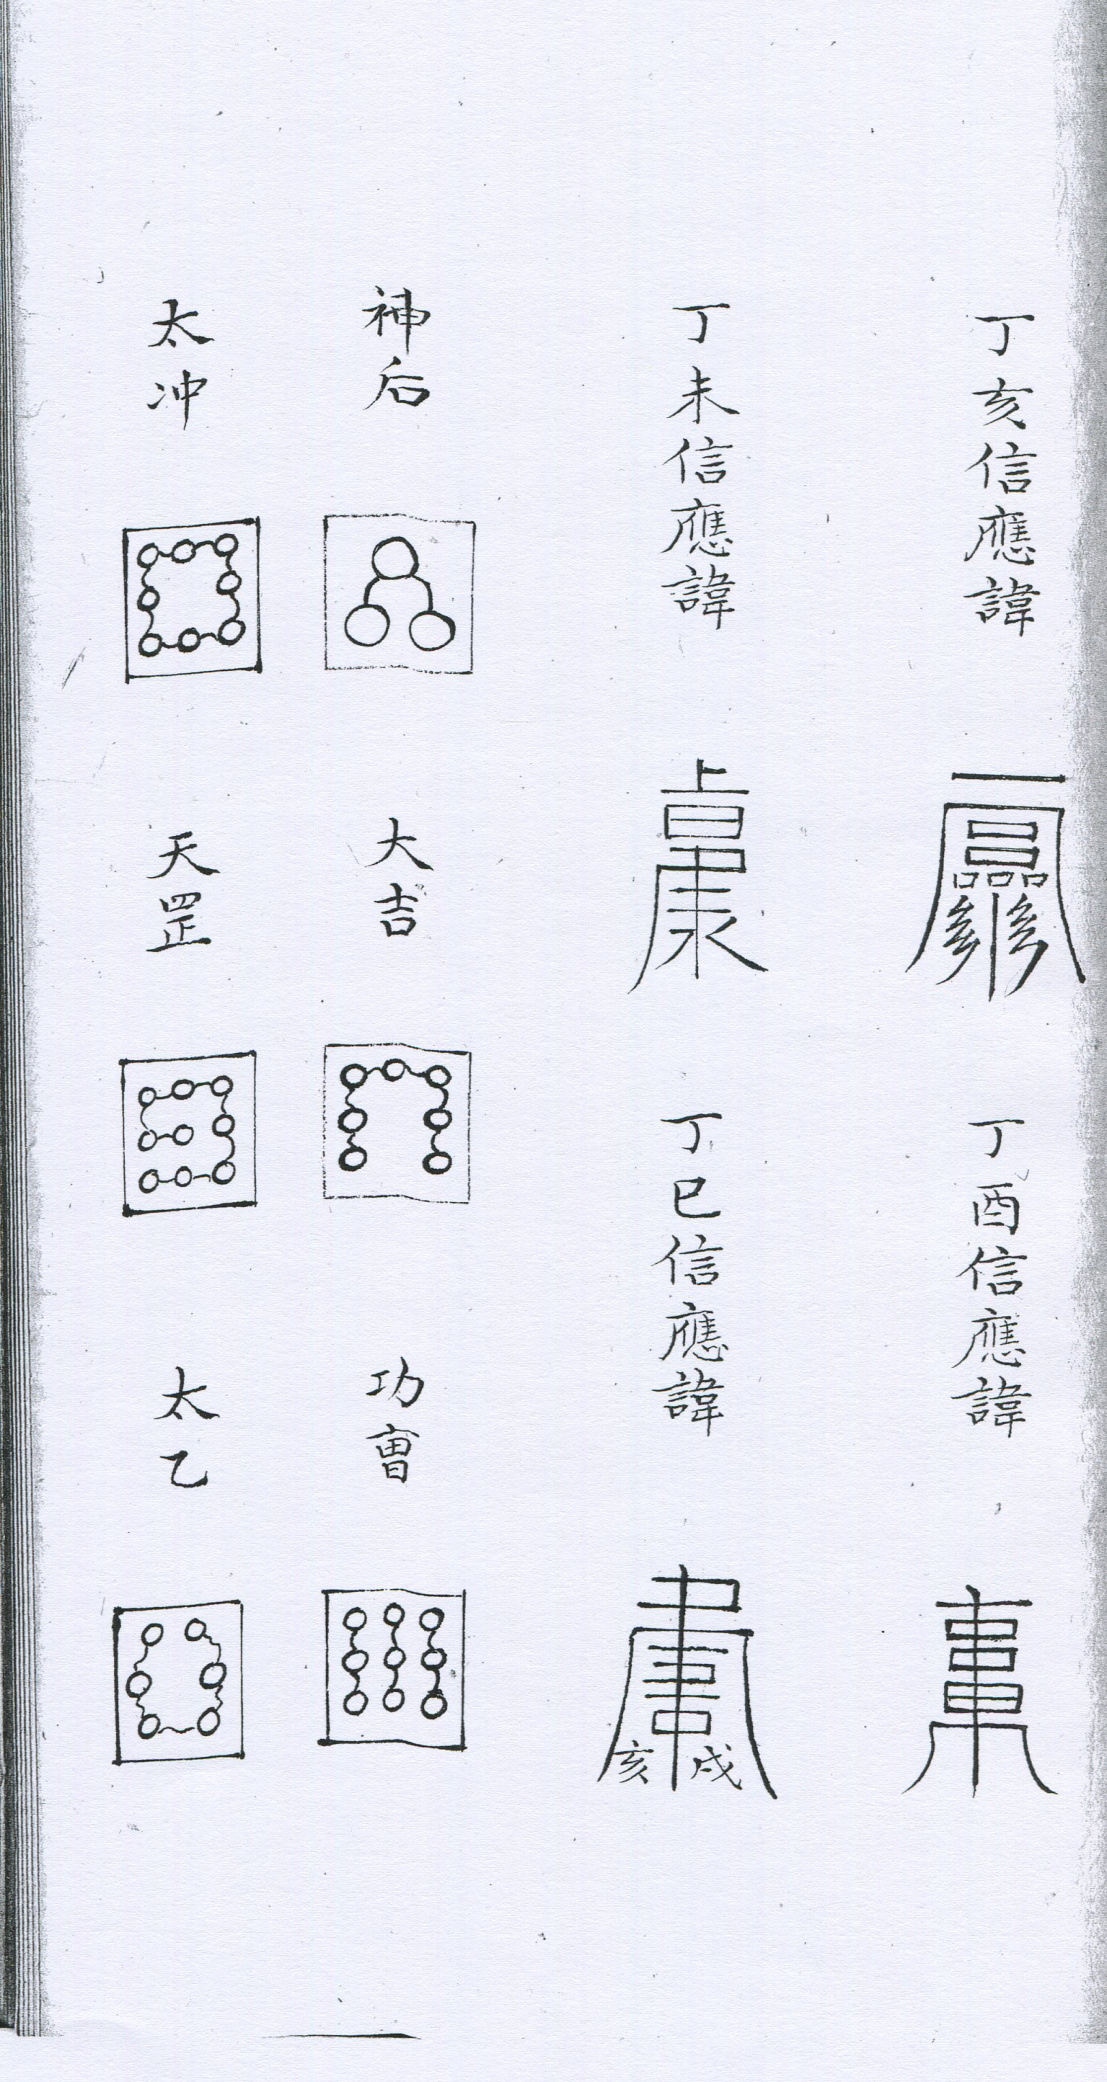 丁亥信應諱
丁酉信應諱
丁未信應諱
丁巳信應諱
亥 戌
神后
大吉
功曺
太冲
天罡
太乙